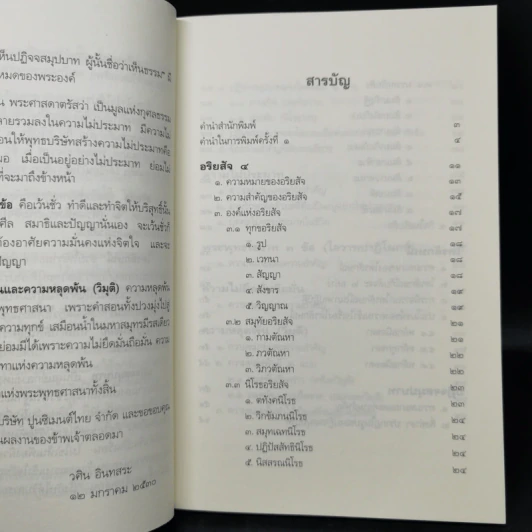 ห็นปฏิจจสมุปบาท ผู้นั้นชื่อว่าเห็นธรรม" มี
หมดของพระองค์
น พระศาสดาตรัสว่า เป็นมูลแห่งกุศลธรรม
ลายรวมลงในความไม่ประมาท มีความไม่
อนให้พุทธบริษัทสร้างความไม่ประมาทคือ
มอ เมื่อเป็นอยู่อย่างไม่ประมาท ย่อมไม่
ที่จะมาถึงข้างหน้า
ข้อ คือเว้นชั่ว ทำดีและทำจิตให้บริสุทธิ์นั้น
ศีล สมาธิและปัญญานั่นเอง จะเว้นชั่วก็
ต้องอาศัยความมั่นคงแห่งจิตใจ และจะ
ปัญญา
นและความหลุดพ้น (วิมุติ) ความหลุดพ้น
พุทธศาสนา เพราะคำสอนทั้งปวงมุ่งไปสู่
ความทุกข์ เสมือนน้ำในมหาสมุทรมีรสเดียว
ย่อมมีได้เพราะความไม่ยึดมั่นถือมั่น ความ
ทาแห่งความหลุดพ้น
แห่งพระพุทธศาสนาทั้งสิ้น
บริษัท ปูนซิเมนต์ไทย จำกัด และขอขอบคุณ
นผลงานของข้าพเจ้าตลอดมา
วศิน อินทสระ
๑๒ มกราคม ๒๕๓๐
สารบัญ
คำนำสำนักพิมพ์ ๓
คำนำในการพิมพ์ครั้งที่ ๑ ๔
อริยสัจ ๔ ๑๑
๑. ความหมายของอริยสัจ ๑๓
๒. ความสำคัญของอริยสัจ ๑๕
๓. องค์แห่งอริยสัจ ๑๗
๓.๑ ทุกขอริยสัจ ๑๗
๑. รูป ๑๘
๒. เวทนา ๑๘
๓. สัญญา ๑๘
๔. สังขาร ๑๘
๕. วิญญาณ ๑๘
๓.๒ สมุทัยอริยสัจ ๒๑
๑. กามตัณหา ๒๑
๒. ภวตัณหา ๒๒
๓. วิภวตัณหา ๒๒
๓.๓ นิโรธอริยสัจ ๒๓
๑. ตทังคนิโรธ ๒๓
๒. วิกขัมภนนิโรธ ๒๔
๓. สมุทเฉทนิโรธ ๒๔
๔. ปฏิปัสสัทธินิโรธ ๒๔
๕. นิสสรณนิโรธ ๒๔